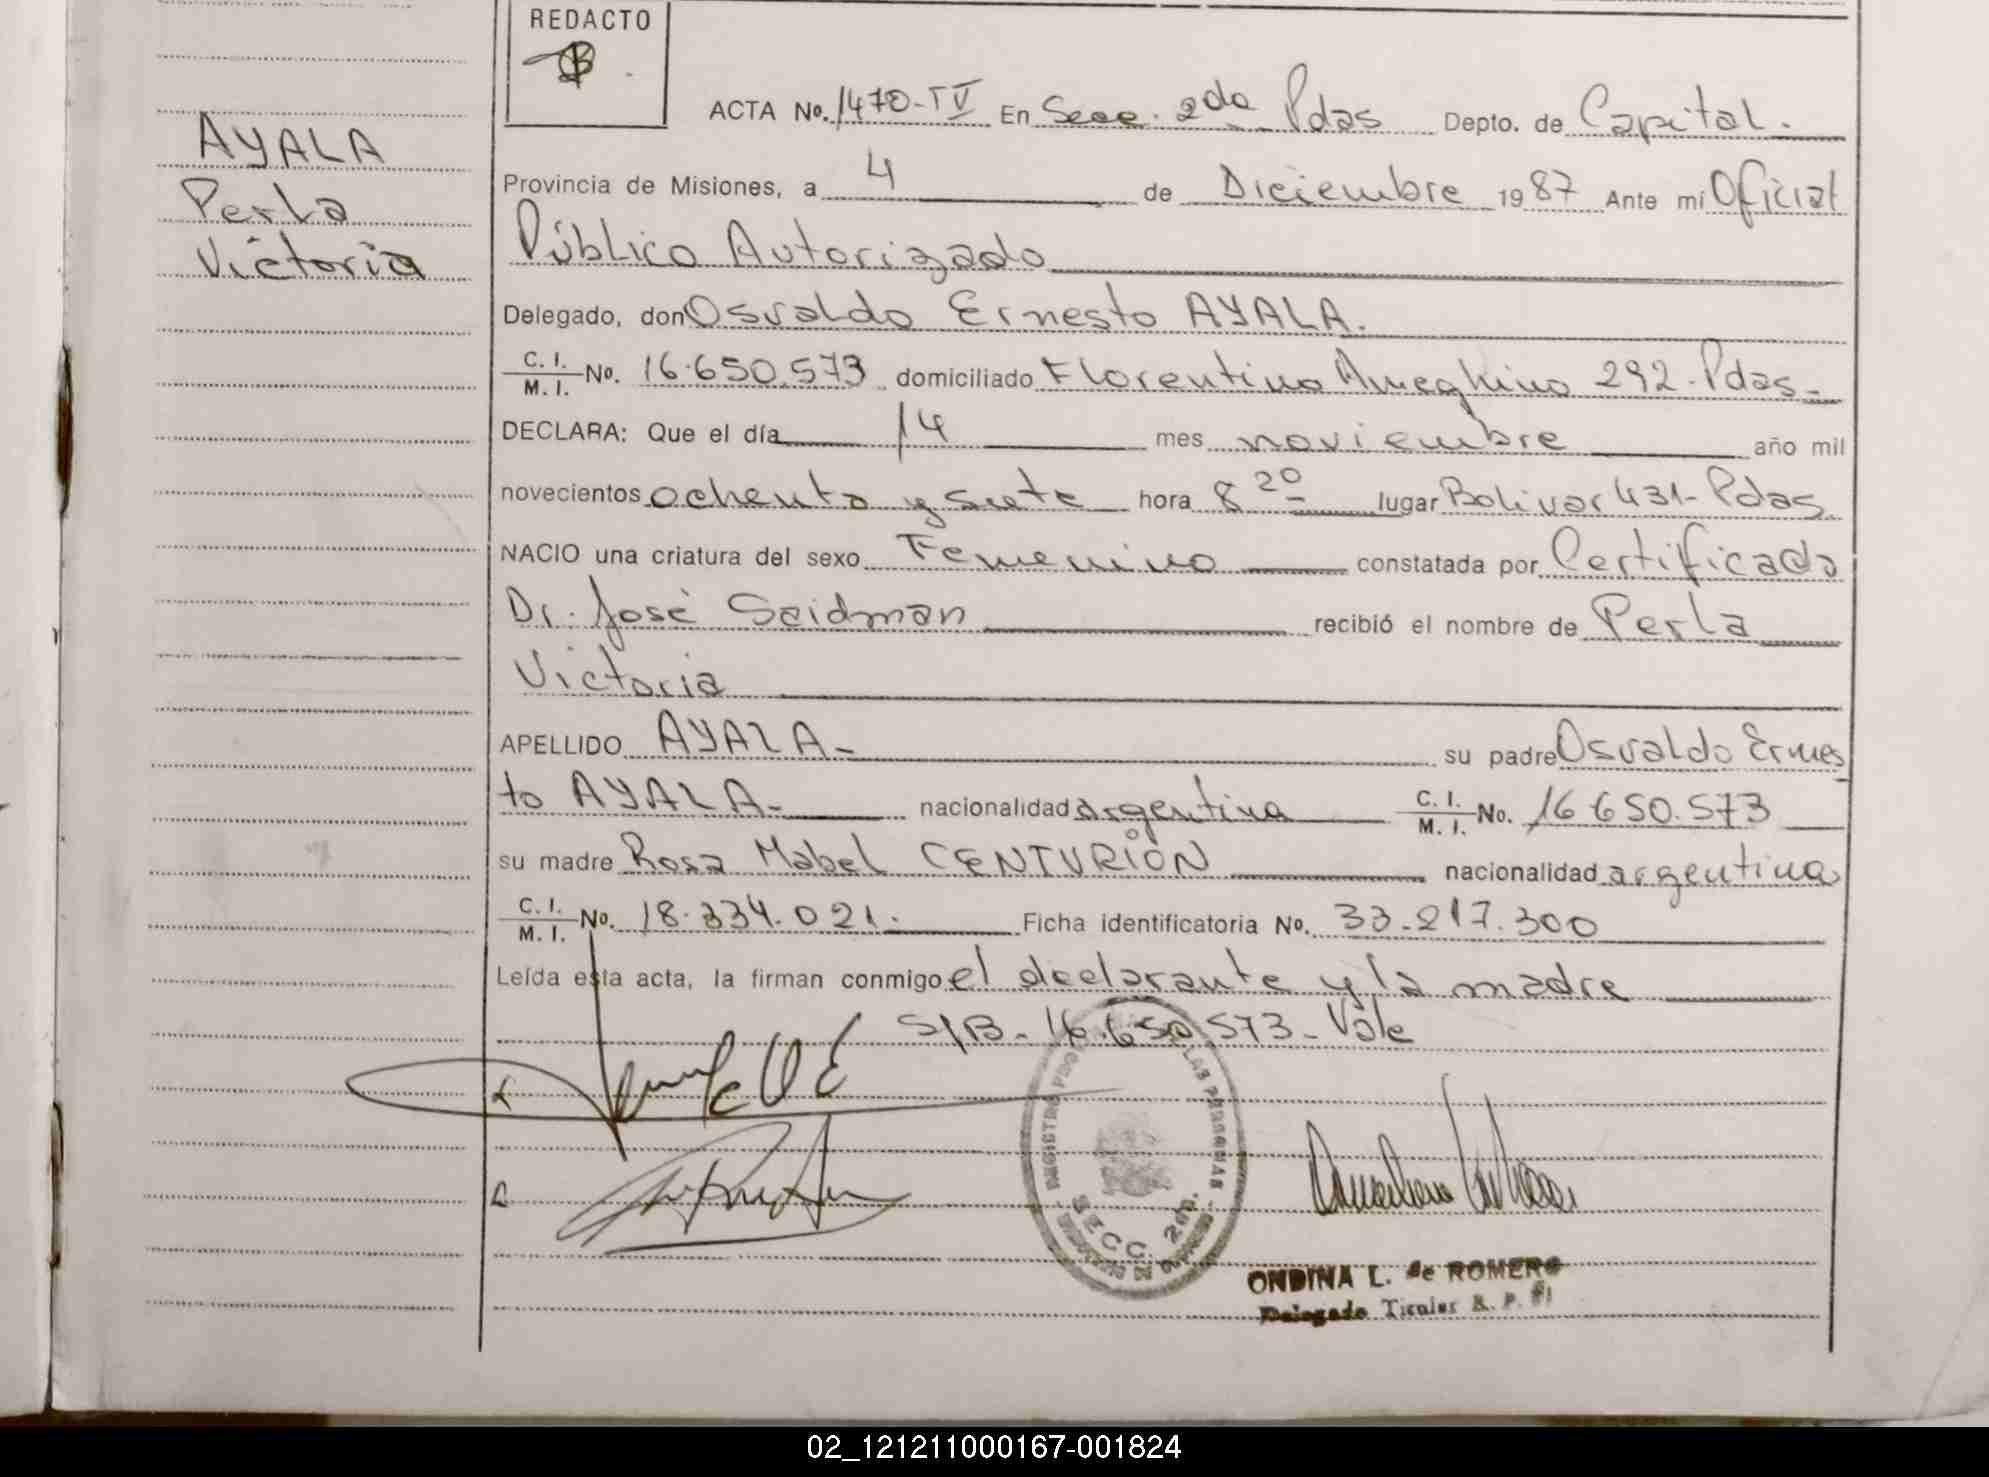 REDACTO
AYALA
Perla
Victoria
ACTA No. 1470-TV En Secc. 2da Pdas Depto. de Capital.
Provincia de Misiones, a 4 de Diciembre 1987 Ante mí Oficial
Público Autorizado
Delegado, don Osvaldo Ernesto AYALA.
C. I. / M. I. No. 16.650.573 domiciliado Florentino Ameghino 292-Pdas-
DECLARA: Que el día 14 mes noviembre año mil
novecientos ochenta y siete hora 8 20 lugar Bolivar 431-Pdas
NACIO una criatura del sexo Femenino constatada por Certificado
Dr. José Seidman recibió el nombre de Perla
Victoria
APELLIDO AYALA- su padre Osvaldo Ernes
to AYALA- nacionalidad argentina C. I. / M. I. No. 16 650.573
su madre Rosa Mabel CENTURIÓN nacionalidad argentina
C. I. / M. I. No. 18.334.021. Ficha identificatoria No. 33.217.300
Leída esta acta, la firman conmigo el declarante y la madre
S/B- 16.650.573- Vale
SECC. 2da.
ONDINA L. de ROMERO
Delegado Titular R. P.
02_121211000167-001824